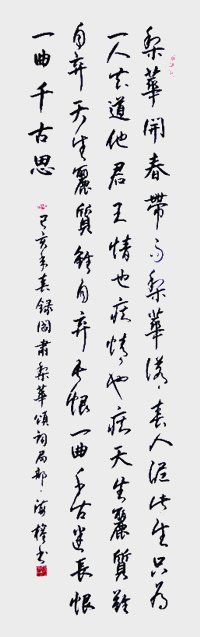 梨華開春帶雨梨華落春人泥此生只為
一人去道他君王情也痴情也痴天生麗質難
自弃天生麗質難自弃長恨一曲千古迷長恨
一曲千古思
己亥年春錄閻肅梨華頌詞局部海 书